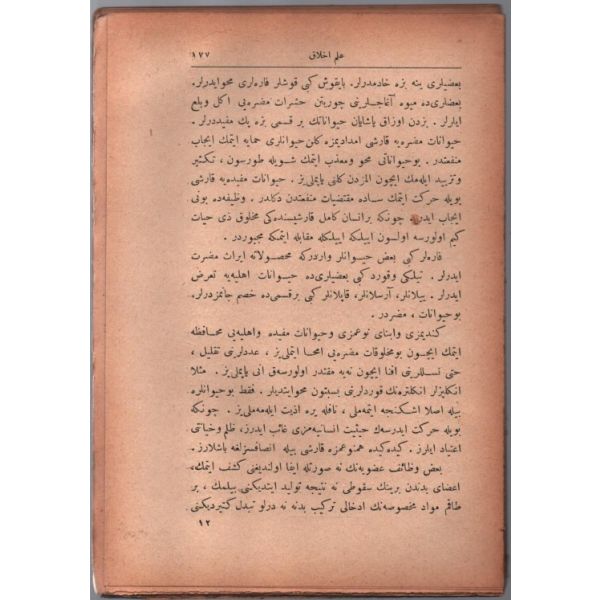 علم اخلاق ١٧٧
بعضیلری ینه بزه خادمدرلر. بایقوش کبی قوشلر فاره‌لری محو ایدرلر.
بعضلری‌ده میوه آغاجلرینی چوریتن حشرات مضره‌یی اکل و بلع
ایلرلر. بزدن اوزاق یاشایان حیواناتك بر قسمی بزه پك مفیددرلر.
حیوانات مضره‌یه قارشی امدادیمزه کلن حیوانلری حمایه ایتمك ایجاب
منفعتدر. بو حیواناتی محو و معذب ایتمك شویله طورسون، تکثیر
و تزیید ایله‌مك ایچون المزدن کلنی یاپملی‌یز. حیوانات مفیده‌یه قارشی
بویله حرکت ایتمك ساده مقتضیات منفعتدن دکلدر. وظیفه‌ده بونی
ایجاب ایدر. چونکه بر انسان کامل قارشیسنده‌کی مخلوق ذی حیات
کیم اولورسه اولسون اییلکه اییلکله مقابله ایتمکه مجبوردر.
فاره‌لر کبی بعض حیوانلر واردرکه محصولاته ایراث مضرت
ایدرلر. تیلکی و قورد کبی بعضیلری‌ده حیوانات اهلیه‌یه تعرض
ایدرلر. ییلانلر، آرسلانلر، قاپلانلر کبی بر قسمی‌ده خصم جانمزدرلر.
بو حیوانات، مضردر.
کندیمزی و ابنای نوعمزی و حیوانات مفیده و اهلیه‌یی محافظه
ایتمك ایچون بو مخلوقات مضره‌یی امحا ایتملی‌یز، عددلرینی تقلیل،
حتی نسللرینی افنا ایچون نه‌یه مقتدر اولورسه‌ق انی یاپملی‌یز. مثلا
انکلیزلر انکلتره‌نك قوردلرینی بسبتون محو ایتدیلر. فقط بو حیوانلره
بیله اصلا اشکنجه ایتمه‌ملی، نافله یره اذیت ایله‌مه‌ملی‌یز. چونکه
بویله حرکت ایدرسه‌ك حیثیت انسانیه‌مزی غائب ایدرز، ظلم و خیانتی
اعتیاد ایلرز. کیده کیده همنوعمزه قارشی بیله انصافسزلغه باشلارز.
بعض وظائف عضویه‌نك نه صورتله ایفا اولندیغنی کشف ایتمك،
اعضای بدندن برینك سقوطی نه نتیجه تولید ایتدیکنی بیلمك، بر
طاقم مواد مخصوصه‌نك ادخالی ترکیب بدنه نه درلو تبدل کتیردیکنی
١٢